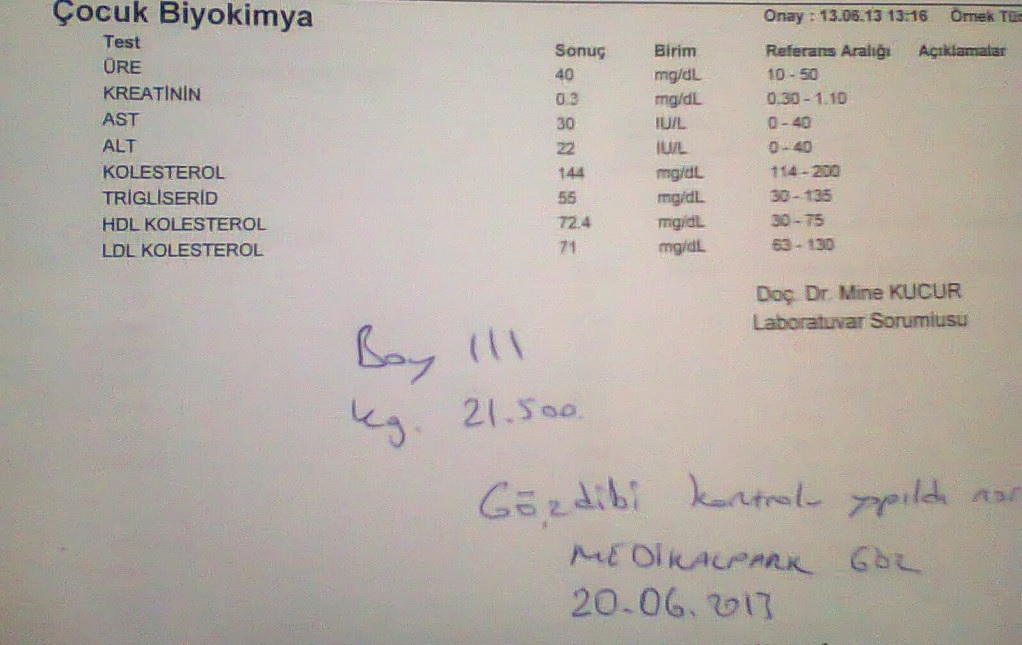 Çocuk Biyokimya
Onay : 13.06.13 13:16 Örnek Tür
Test Sonuç Birim Referans Aralığı Açıklamalar
ÜRE 40 mg/dL 10 - 50
KREATİNİN 0.3 mg/dL 0.30 - 1.10
AST 30 IU/L 0 - 40
ALT 22 IU/L 0 - 40
KOLESTEROL 144 mg/dL 114 - 200
TRİGLİSERİD 55 mg/dL 30 - 135
HDL KOLESTEROL 72.4 mg/dL 30 - 75
LDL KOLESTEROL 71 mg/dL 63 - 130
Doç. Dr. Mine KUCUR
Laboratuvar Sorumlusu
Boy 111
kg. 21.500
Gözdibi kontrolu yapıldı nor
MEDİKALPARK GÖZ
20.06.2013